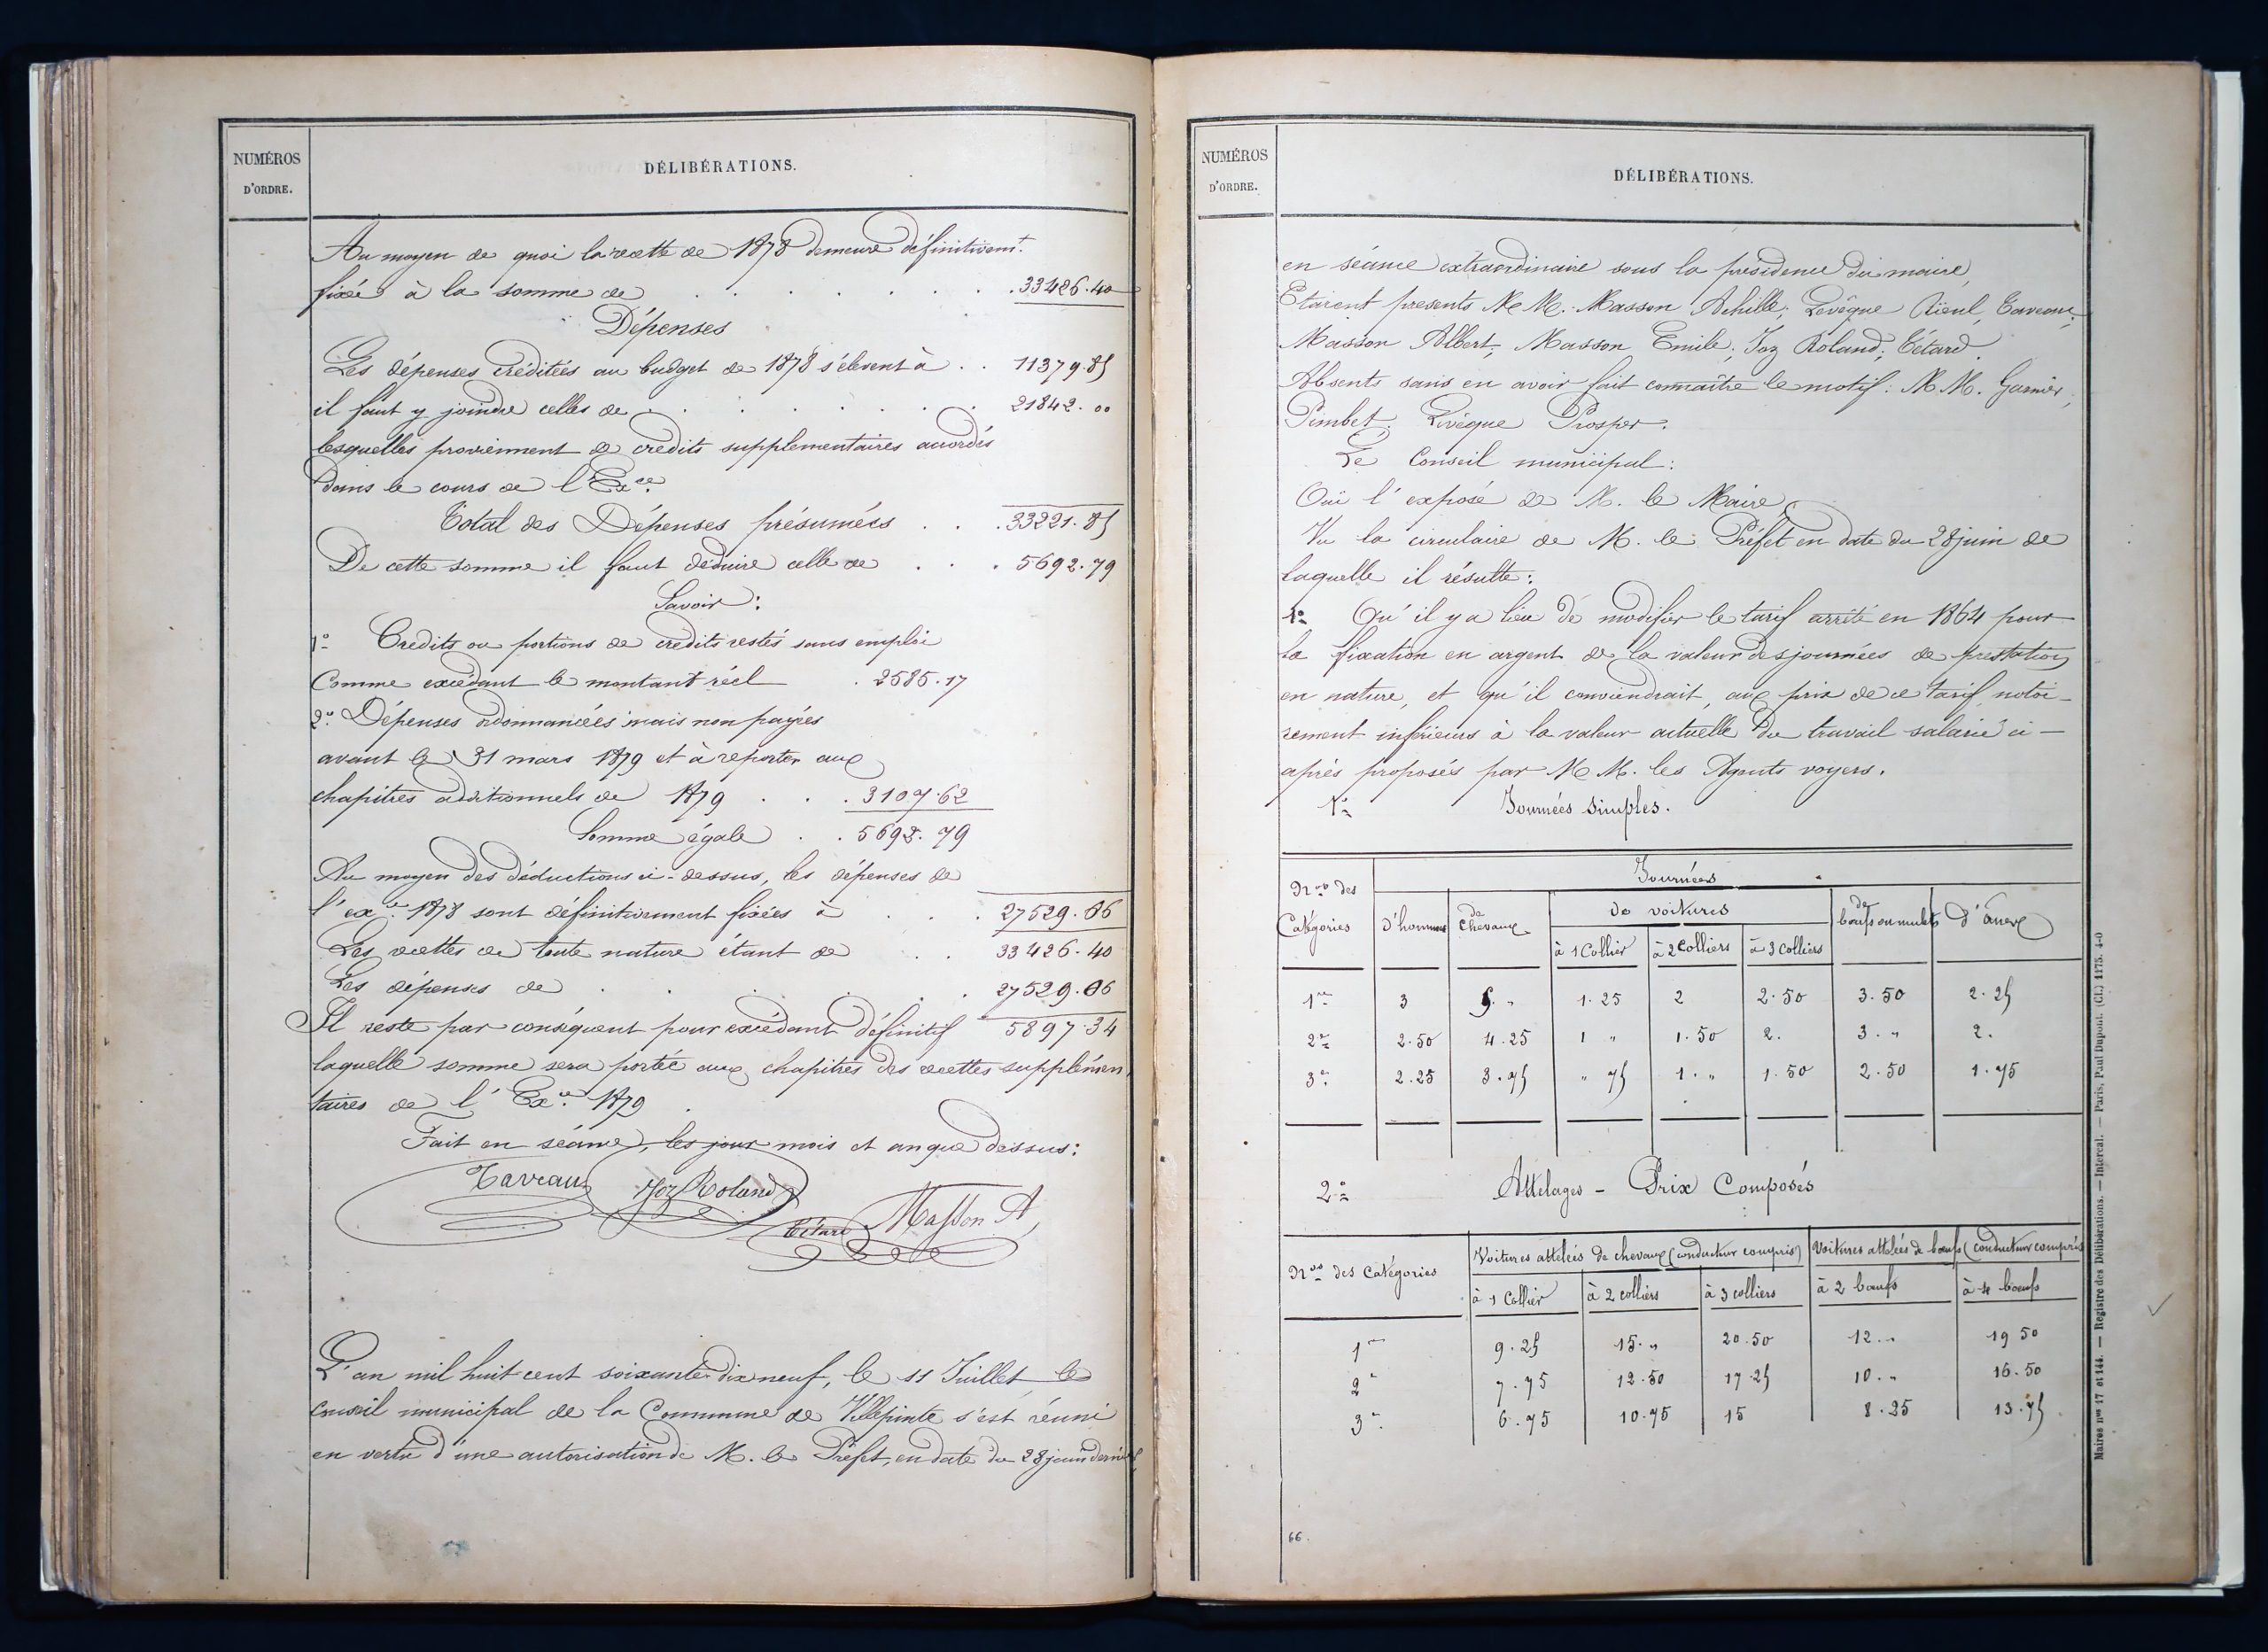 NUMÉROS
D'ORDRE.
DÉLIBÉRATIONS.
Au moyen de quoi la recette de 1878 demeure définitivemt.
fixée à la somme de . . . . . . . 33426.40
Dépenses
Les dépenses créditées au budget de 1878 s'élevent à . . 11379.85
il faut y joindre celles de . . . . . . . 21842.00
lesquelles proviennent de crédits supplementaires accordés
dans le cours de l'Exce.
Total des Dépenses présumées . . . 33221.85
De cette somme il faut déduire celle de . . . 5692.79
Savoir :
1o Credits ou portions de credits restés sans emploi
Comme excédant le montant réel . 2585.17
2o Dépenses ordonnancées mais non payées
avant le 31 mars 1879 et à reporter aux
chapitres additionnels de 1879 . . . 3107.62
Somme égale . . 5692.79
Au moyen des déductions ci-dessus, les dépenses de
l'exce. 1878 sont définitivement fixées à . . . 27529.06
Les recettes de toute nature étant de . . 33426.40
Les dépenses de . . . . . . 27529.06
Il reste par conséquent pour excédant définitif 5897.34
laquelle somme sera portée aux chapitres des recettes supplémen
taires de l'Exce. 1879.
Fait en séance, les jour mois et an que dessus :
Taveau Joz Roland
Tétard Masson A
L'an mil huit cent soixante-dix neuf, le 11 Juillet, le
conseil municipal de la Commune de Villepinte s'est réuni
en vertu d'une autorisation de M. le Préfet, en date du 28 juin dernier
NUMÉROS
D'ORDRE.
DÉLIBÉRATIONS.
en séance extraordinaire sous la présidence du maire,
Etaient presents MM. Masson Achille; Levêque Rieul, Taveau;
Masson Albert; Masson Emile; Joz Roland; Tétard.
Absents sans en avoir fait connaître le motif : MM. Garnier;
Pimbet; Livêque Prosper.
Le Conseil municipal :
Ouï l'exposé de M. le Maire,
Vu la circulaire de M. le Préfet en date du 28 juin de
laquelle il résulte :
1o Qu'il y a lieu de modifier le tarif arrêté en 1864 pour
la fixation en argent de la valeur des journées de prestation
en nature, et qu'il conviendrait, aux prix de ce tarif notoi-
rement inférieurs à la valeur actuelle du travail salarié ci-
après proposés par MM. les Agents voyers.
1o Journées Simples.
Nos des Catégories
Journées
D'hommes
de Chevaux
de voitures
de bœufs ou mulets
D'ânes
à 1 Collier à 2 Colliers à 3 Colliers
1re 3 5. " 1.25 2 2.50 3.50 2.25
2e 2.50 4.25 1 " 1.50 2. 3. " 2.
3e 2.25 3.75 " 75 1. " 1.50 2.50 1.75
2o Attelages - Prix Composés
Nos des Catégories
Voitures attelées de chevaux (conducteur compris)
Voitures attelées de bœufs (conducteur compris
à 1 Collier à 2 colliers à 3 colliers à 2 bœufs à 4 bœufs
1re 9.25 15. " 20.50 12. " 19 50
2e 7.75 12.50 17.25 10. " 16.50
3e 6.75 10.75 15 8.25 13.75
66.
Maires nos 17 et 144. — Registre des Délibérations. — Intercal. — Paris, Paul Dupont. (Cl.) 1175. 4-0